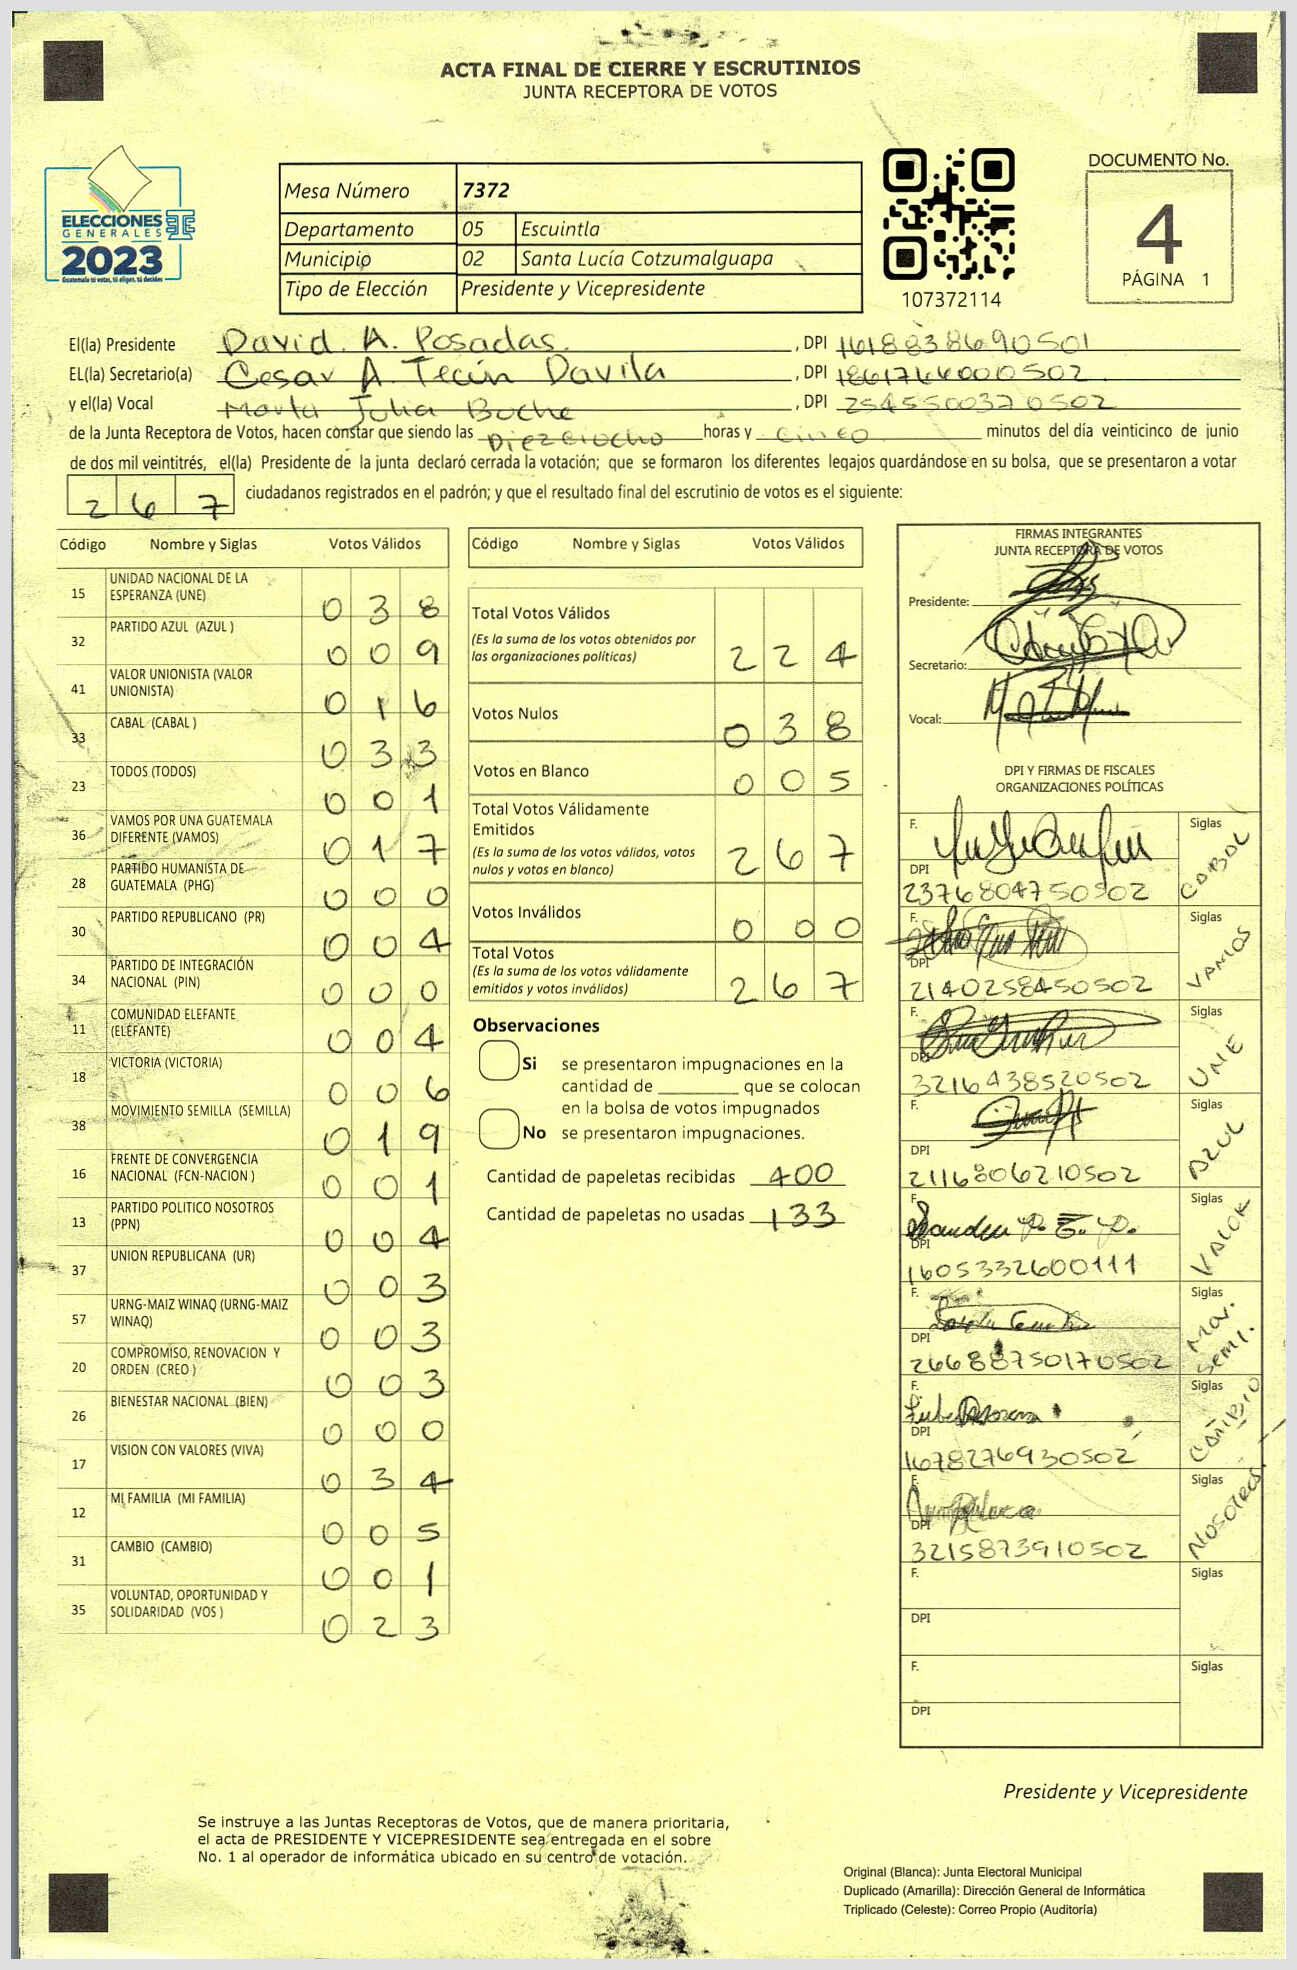 ACTA FINAL DE CIERRE Y ESCRUTINIOS
JUNTA RECEPTORA DE VOTOS
ELECCIONES
GENERALES
2023
Guatemala tú votas, tú eliges, tú decides
Mesa Número 7372
Departamento 05 Escuintla
Municipio 02 Santa Lucía Cotzumalguapa
Tipo de Elección Presidente y Vicepresidente
107372114
DOCUMENTO No.
4
PÁGINA 1
El(la) Presidente David. A. Posadas. , DPI 1618838690501
EL(la) Secretario(a) Cesar A. Tecún Davila , DPI 1861764000502
y el(la) Vocal Marta Julia Buche , DPI 2545500370502
de la Junta Receptora de Votos, hacen constar que siendo las Dieziocho horas y cinco minutos del día veinticinco de junio
de dos mil veintitrés, el(la) Presidente de la junta declaró cerrada la votación; que se formaron los diferentes legajos quardándose en su bolsa, que se presentaron a votar
267 ciudadanos registrados en el padrón; y que el resultado final del escrutinio de votos es el siguiente:
Código Nombre y Siglas Votos Válidos
15 UNIDAD NACIONAL DE LA
ESPERANZA (UNE) 0 3 8
32 PARTIDO AZUL (AZUL ) 0 0 9
41 VALOR UNIONISTA (VALOR
UNIONISTA) 0 1 6
33 CABAL (CABAL ) 0 3 3
23 TODOS (TODOS) 0 0 1
36 VAMOS POR UNA GUATEMALA
DIFERENTE (VAMOS) 0 1 7
28 PARTIDO HUMANISTA DE
GUATEMALA (PHG) 0 0 0
30 PARTIDO REPUBLICANO (PR) 0 0 4
34 PARTIDO DE INTEGRACIÓN
NACIONAL (PIN) 0 0 0
11 COMUNIDAD ELEFANTE
(ELEFANTE) 0 0 4
18 VICTORIA (VICTORIA) 0 0 6
38 MOVIMIENTO SEMILLA (SEMILLA) 0 1 9
16 FRENTE DE CONVERGENCIA
NACIONAL (FCN-NACION ) 0 0 1
13 PARTIDO POLITICO NOSOTROS
(PPN) 0 0 4
37 UNION REPUBLICANA (UR) 0 0 3
57 URNG-MAIZ WINAQ (URNG-MAIZ
WINAQ) 0 0 3
20 COMPROMISO, RENOVACION Y
ORDEN (CREO ) 0 0 3
26 BIENESTAR NACIONAL (BIEN) 0 0 0
17 VISION CON VALORES (VIVA) 0 3 4
12 MI FAMILIA (MI FAMILIA) 0 0 5
31 CAMBIO (CAMBIO) 0 0 1
35 VOLUNTAD, OPORTUNIDAD Y
SOLIDARIDAD (VOS ) 0 2 3
Código Nombre y Siglas Votos Válidos
Total Votos Válidos
(Es la suma de los votos obtenidos por
las organizaciones políticas) 2 2 4
Votos Nulos 0 3 8
Votos en Blanco 0 0 5
Total Votos Válidamente
Emitidos
(Es la suma de los votos válidos, votos
nulos y votos en blanco) 2 6 7
Votos Inválidos 0 0 0
Total Votos
(Es la suma de los votos válidamente
emitidos y votos inválidos) 2 6 7
Observaciones
Si se presentaron impugnaciones en la
cantidad de ________ que se colocan
en la bolsa de votos impugnados
No se presentaron impugnaciones.
Cantidad de papeletas recibidas 400
Cantidad de papeletas no usadas 133
FIRMAS INTEGRANTES
JUNTA RECEPTORA DE VOTOS
Presidente:
Secretario:
Vocal:
DPI Y FIRMAS DE FISCALES
ORGANIZACIONES POLÍTICAS
F. Siglas
DPI CABAL
2376804750502
F. Siglas
DPI VAMOS
2140258450502
F. Siglas
DPI UNE
3216438520502
F. Siglas
DPI AZUL
2116806210502
F. Siglas
DPI VALOR
1605332600111
F. Siglas
DPI Mov. Semi.
2668875017 0502
F. Siglas
DPI CAMBIO
1678276930502
F. Siglas
DPI NOSOTROS
3215873910502
F. Siglas
DPI
F. Siglas
DPI
Presidente y Vicepresidente
Se instruye a las Juntas Receptoras de Votos, que de manera prioritaria,
el acta de PRESIDENTE Y VICEPRESIDENTE sea entregada en el sobre
No. 1 al operador de informática ubicado en su centro de votación.
Original (Blanca): Junta Electoral Municipal
Duplicado (Amarilla): Dirección General de Informática
Triplicado (Celeste): Correo Propio (Auditoría)